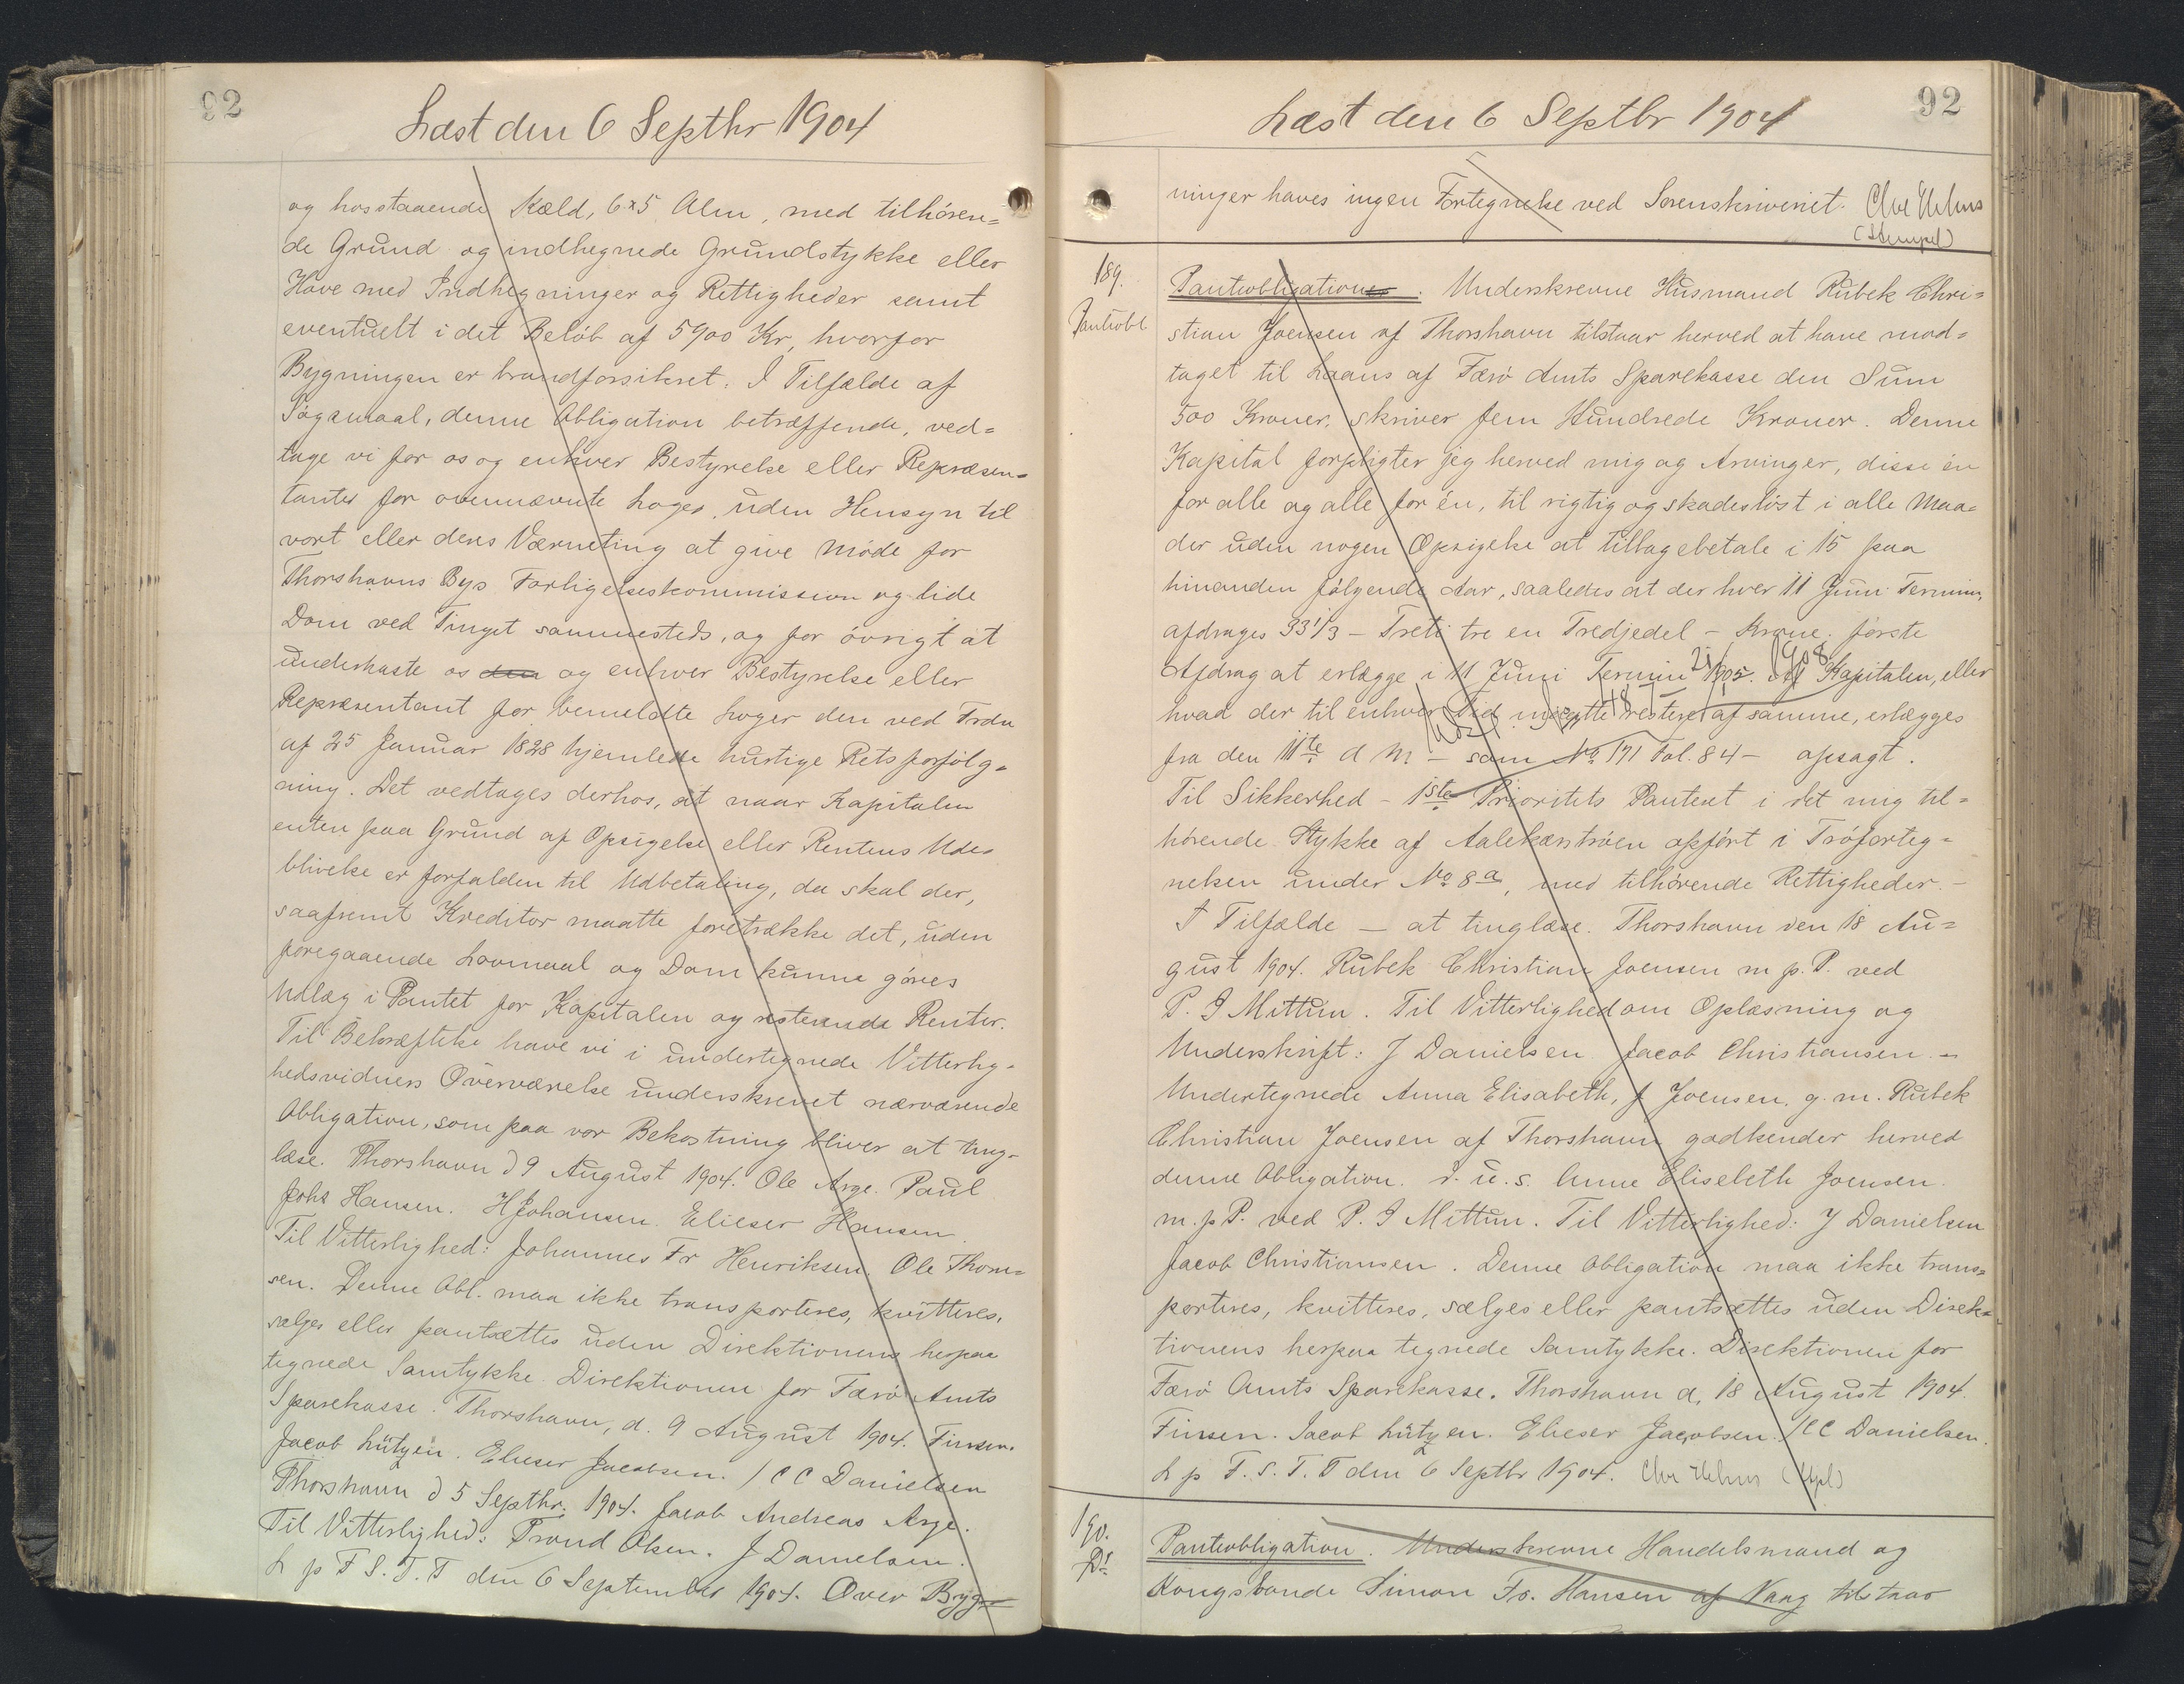 92
Læst den 6 Septbr 1904
og hosstaaende Kæld, 6×5 Alen, med tilhören=
de Grund og indhegnede Grundstykke eller
Have med Indhegninger og Rettigheder samt
eventuelt i det Belöb af 5900 Kr, hvorfor
Bygningen er brandforsikret. I Tilfælde af
Sögsmaal, denne Obligation betræffende, ved=
tage vi for os og enhver Bestyrelse eller Repræsen=
tanter for ovennævnte Loger, uden Hensyn til
vort eller dens Værneting at give Möde for
Thorshavns Bys Forligelseskommission og lide
Dom ved Tinget sammesteds, og for övrigt at
underkaste os den og enhver Bestyrelse eller
Repræsentant for bemeldte Loger den ved Frdn
af 25 Januar 1828 hjemlede hurtige Retsforfölg=
ning. Det vedtages derhos, at naar Kapitalen
enten paa Grund af Opsigelse eller Rentens Ude=
blivelse er forfalden til Udbetaling, da skal der,
saafremt Kreditor maatte foretrække det, uden
foregaaende Lovmaal og Dom kunne göres
Udlæg i Pantet for Kapitalen og resterende Renter.
Til Bekræftelse have vi i undertegnede Vitterlig=
hedsvidners Overværelse underskrevet nærværende
Obligation, som paa vor Bekostning bliver at ting=
læse. Thorshavn d 9 August 1904. Ole Arge. Paul
Johs Hansen. HJohansen. Elieser Hansen.
Til Vitterlighed: Johannes Fr Henriksen. Ole Thom=
sen. Denne Obl. maa ikke transporteres, kvitteres,
sælges eller pantsættes uden Direktionens herpaa
tegnede Samtykke. Direktionen for Færö Amts
Sparekasse. Thorshavn, d. 9 August 1904. Finsen.
Jacob Lützen. Elieser Jacobsen. / C C Danielsen
Thorshavn d 5 Septbr. 1904. Jacob Andreas Arge.
Til Vitterlighed: Trond Olsen. J Danielsen.
L p F S. T. T den 6 September 1904. Over Byg=
92
Læst den 6 Septbr 1904
ninger haves ingen Fortegnelse ved Sorenskriveriet.
(Stempel)
189.
Panteobl
Panteobligation. Underskrevne Husmand Rubek Chri=
stian Joensen af Thorshavn tilstaar herved at have mod=
taget til Laans af Færö Amts Sparekasse den Sum
500 Kroner, skriver fem Hundrede Kroner. Denne
Kapital forpligter jeg herved mig og Arvinger, disse én
for alle og alle for én, til rigtig og skadeslöst i alle Maa=
der uden nogen Opsigelse at tilbagebetale i 15 paa
hinanden fölgende Aar, saaledes at der hver 11 Juni Termin,
afdrages 33 1/3 – Treti tre en Tredjedel – Krone, förste
Afdrag at erlægge i 11 Juni Termin 1905. Af Kapitalen, eller
hvad der til enhver Tid maatte restere af samme, erlægges
fra den 11te d M. – som No 171 Fol. 84 – opsagt.
Til Sikkerhed – 1ste Prioritets Panteret i det mig til=
hörende Stykke af Aalekærströen opfört i Tröforteg=
nelsen under No 8a, med tilhörende Rettigheder. –
I Tilfælde – at tinglæse. Thorshavn den 18 Au=
gust 1904. Rubek Christian Joensen m p. P. ved
P. J Mittun. Til Vitterlighed om Oplæsning og
Underskrift: J Danielsen Jacob Christiansen. –
Undertegnede Anna Elisabeth, f Joensen, g. m. Rubek
Christian Joensen af Thorshavn godkender herved
denne Obligation. d. u. s. Anne Eliseleth Joensen.
m. p P. ved P. J Mittun. Til Vitterlighed: J Danielsen
Jacob Christiansen. Denne Obligation maa ikke trans=
porteres, kvitteres, sælges eller pantsættes uden Direk=
tionens herpaa tegnede Samtykke. Direktionen for
Færö Amts Sparekasse. Thorshavn d, 18 August 1904.
Finsen. Jacob Lützen. Elieser Jacobsen. / CC Danielsen.
L p F. S. T. T den 6 Septbr 1904. (Stpl)
190.
Do
Panteobligation. Underskrevne Handelsmand og
Kongsbonde Simon Fr. Hansen af Vaag tilstaar